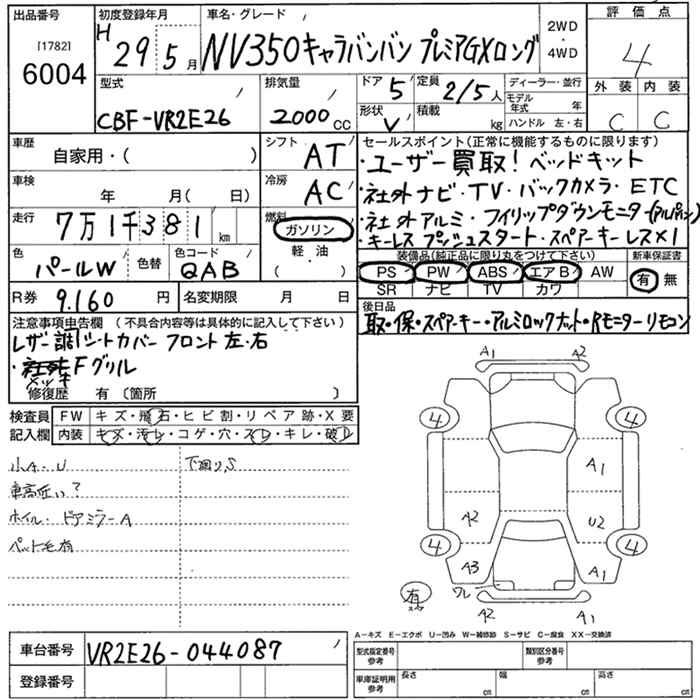 出品番号
[1782]
6004
初度登録年月
H 29 5月
車名・グレード
NV350キャラバンバン プレミアGXロング
2WD
4WD
評価点
4
外装 内装
C C
型式
CBF-VR2E26
排気量
2000cc
ドア
5
定員
2/5人
形状
V
積載
kg
ディーラー・並行
モデル年式 年
ハンドル 左・右
車歴
自家用・( )
シフト
AT
車検
年 月( 日)
冷房
AC
走行
7万1千381km
燃料
ガソリン
軽油
( )
色
パールW
色替
色コード
QAB
R券
9.160円
名変期限 月 日
セールスポイント(正常に機能するものに限ります)
・ユーザー買取!ベッドキット
・社外ナビ・TV・バックカメラ・ETC
・社外アルミ・フィリップダウンモニター(アルパイン)
・キーレスプッシュスタート・スペアーキーレス×1
装備品(純正品に限り丸をつけて下さい)
新車保証書
PS PW ABS エアB AW
SR ナビ TV カワ
有 無
後日品
取・保・スペアーキー・アルミロックナット・Rモニターリモコン
注意事項申告欄 (不具合内容等は具体的に記入して下さい)
レザー調シートカバーフロント左・右
・メッキFグリル
修復歴 有〔箇所 〕
検査員記入欄
FW キズ・飛石・ヒビ割・リペア跡・X要
内装 キズ・汚レ・コゲ・穴・スレ・キレ・破レ
小A・U
下廻りS
車高低い?
ホイル・ドアミラーA
ペット毛有
A1 A2
4 4
A1
A2 U2
4 4
A3 A1
有
ワレ
A2 A1
A-キズ E-エクボ U-凹み W-補修跡 S-サビ C-腐食 XX-交換済
車台番号
VR2E26-044087
登録番号
型式指定番号 参考
類別区分番号 参考
車庫証明用 参考
長さ cm
幅 cm
高さ cm